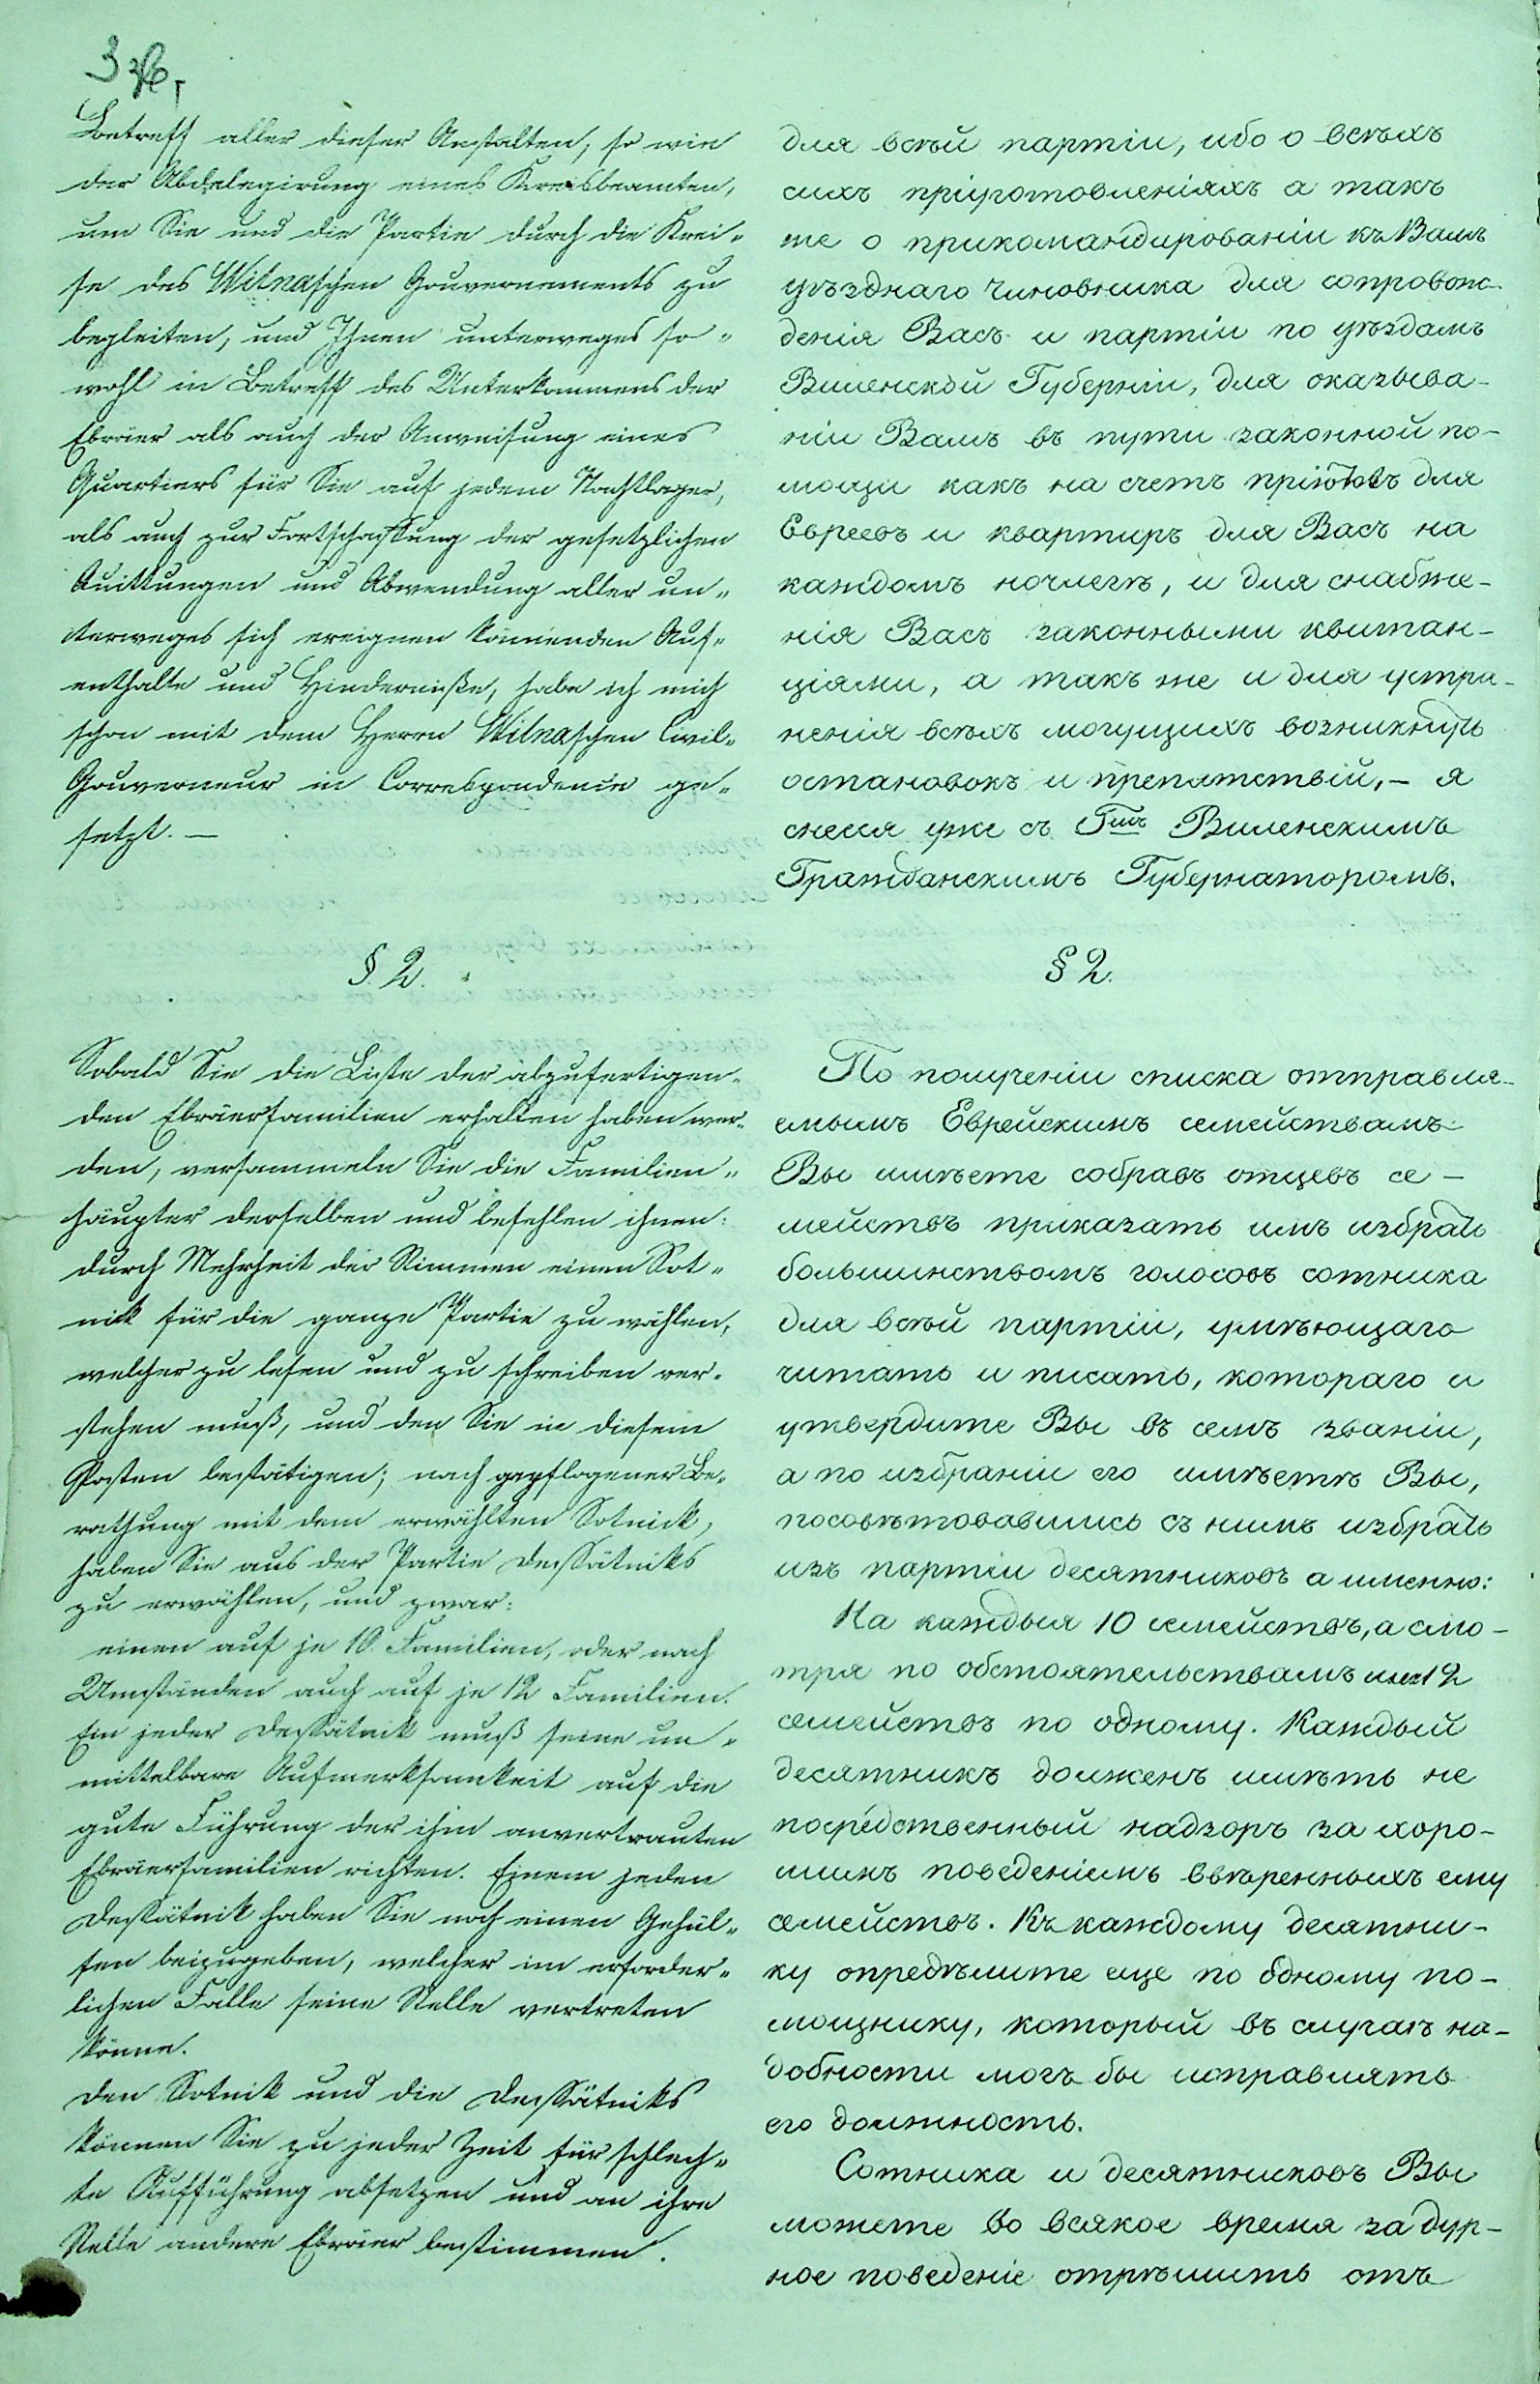 3
Betreff aller dieser Anstalten, so wie
der Abdelegirung eines Kreisbeamten,
um Sie und die Partie durch die Krei-
se des Wilnaschen Gouvernements zu
begleiten, und Ihnen unterweges so-
wohl in Betreff des Unterkommens der
Ebräer als auch der Anweisung eines
Quartiers für Sie auf jedem Nachtlager,
als auch zur Fortschaffung der gesetzlichen
Quittungen und Abwendung aller un-
terweges sich ereignen könnenden Auf-
enthalte und Hinderniße, habe ich mich
schon mit dem Herrn Wilnaschen Civil-
Gouverneur in Correspondence ge-
setzt. —
§. 2.
Sobald Sie die Liste der abzufertigen-
den Ebräerfamilien erhalten haben wer-
den, versammeln Sie die Familien-
häupter derselben und befehlen ihnen:
durch Mehrheit der Stimmen einen Sot-
nik für die ganze Partie zu wählen,
welcher zu lesen und zu schreiben ver-
stehen muß, und den Sie in diesem
Posten bestätigen; nach gepflogener Be-
rathung mit dem erwählten Sotnick,
haben Sie aus der Partie Dessätniks
zu erwählen, und zwar:
einen auf je 10 Familien, oder nach
Umständen auch auf je 12 Familien.
Ein jeder Dessätnik muß seine un-
mittelbare Aufmerksamkeit auf die
gute Führung der ihm anvertrauten
Ebräerfamilien richten. Einem jeden
Dessätnik haben Sie noch einen Gehül-
fen beizugeben, welcher im erforder-
lichen Falle seine Stelle vertreten
könne.
Den Sotnik und die Dessätniks
können Sie zu jeder Zeit für schlech-
te Aufführung absetzen und an ihre
Stelle andere Ebräer bestimmen.
для всѣй партіи, ибо о всѣхъ
сихъ пріуготовленіяхъ а такъ
же о прикомандированіи къ Вамъ
уѣзднаго чиновника для сопровож-
денія Васъ и партіи по уѣздамъ
Виленской Губерніи, для оказыва-
ніи Вамъ въ пути законной по-
мощи какъ на счетъ пріютовъ для
Евреевъ и квартиръ для Васъ на
каждомъ ночлегѣ, и для снабже-
нія Васъ законными квитан-
ціями, а такъ же и для устра-
ненія всѣхъ могущихъ возникнуть
остановокъ и препятствій, – я
снесся уже съ Гмъ Виленскимъ
Гражданскимъ Губернаторомъ.
§ 2.
По полученіи списка отправля-
емымъ Еврейскимъ семействамъ
Вы имѣете собравъ отцевъ се-
мействъ приказать имъ избрать
большинствомъ голосовъ сотника
для всѣй партіи, умѣющаго
читать и писать, котораго и
утвердите Вы въ семъ званіи,
а по избраніи его имѣетѣ Вы,
посовѣтовавшись съ нимъ избрать
изъ партіи десятниковъ а именно:
На каждыя 10 семействъ, а смо-
тря по обстоятельствамъ и на 12
семействъ по одному. Каждый
десятникъ долженъ имѣть не
посредственный надзоръ за хоро-
шимъ поведеніемъ ввѣренныхъ ему
семействъ. Къ каждому десятни-
ку опредѣлите еще по одному по-
мощнику, который въ случаѣ на-
добности могъ бы исправлять
его должность.
Сотника и десятниковъ Вы
можете во всякое время за дур-
ное поведеніе отрѣшить отъ